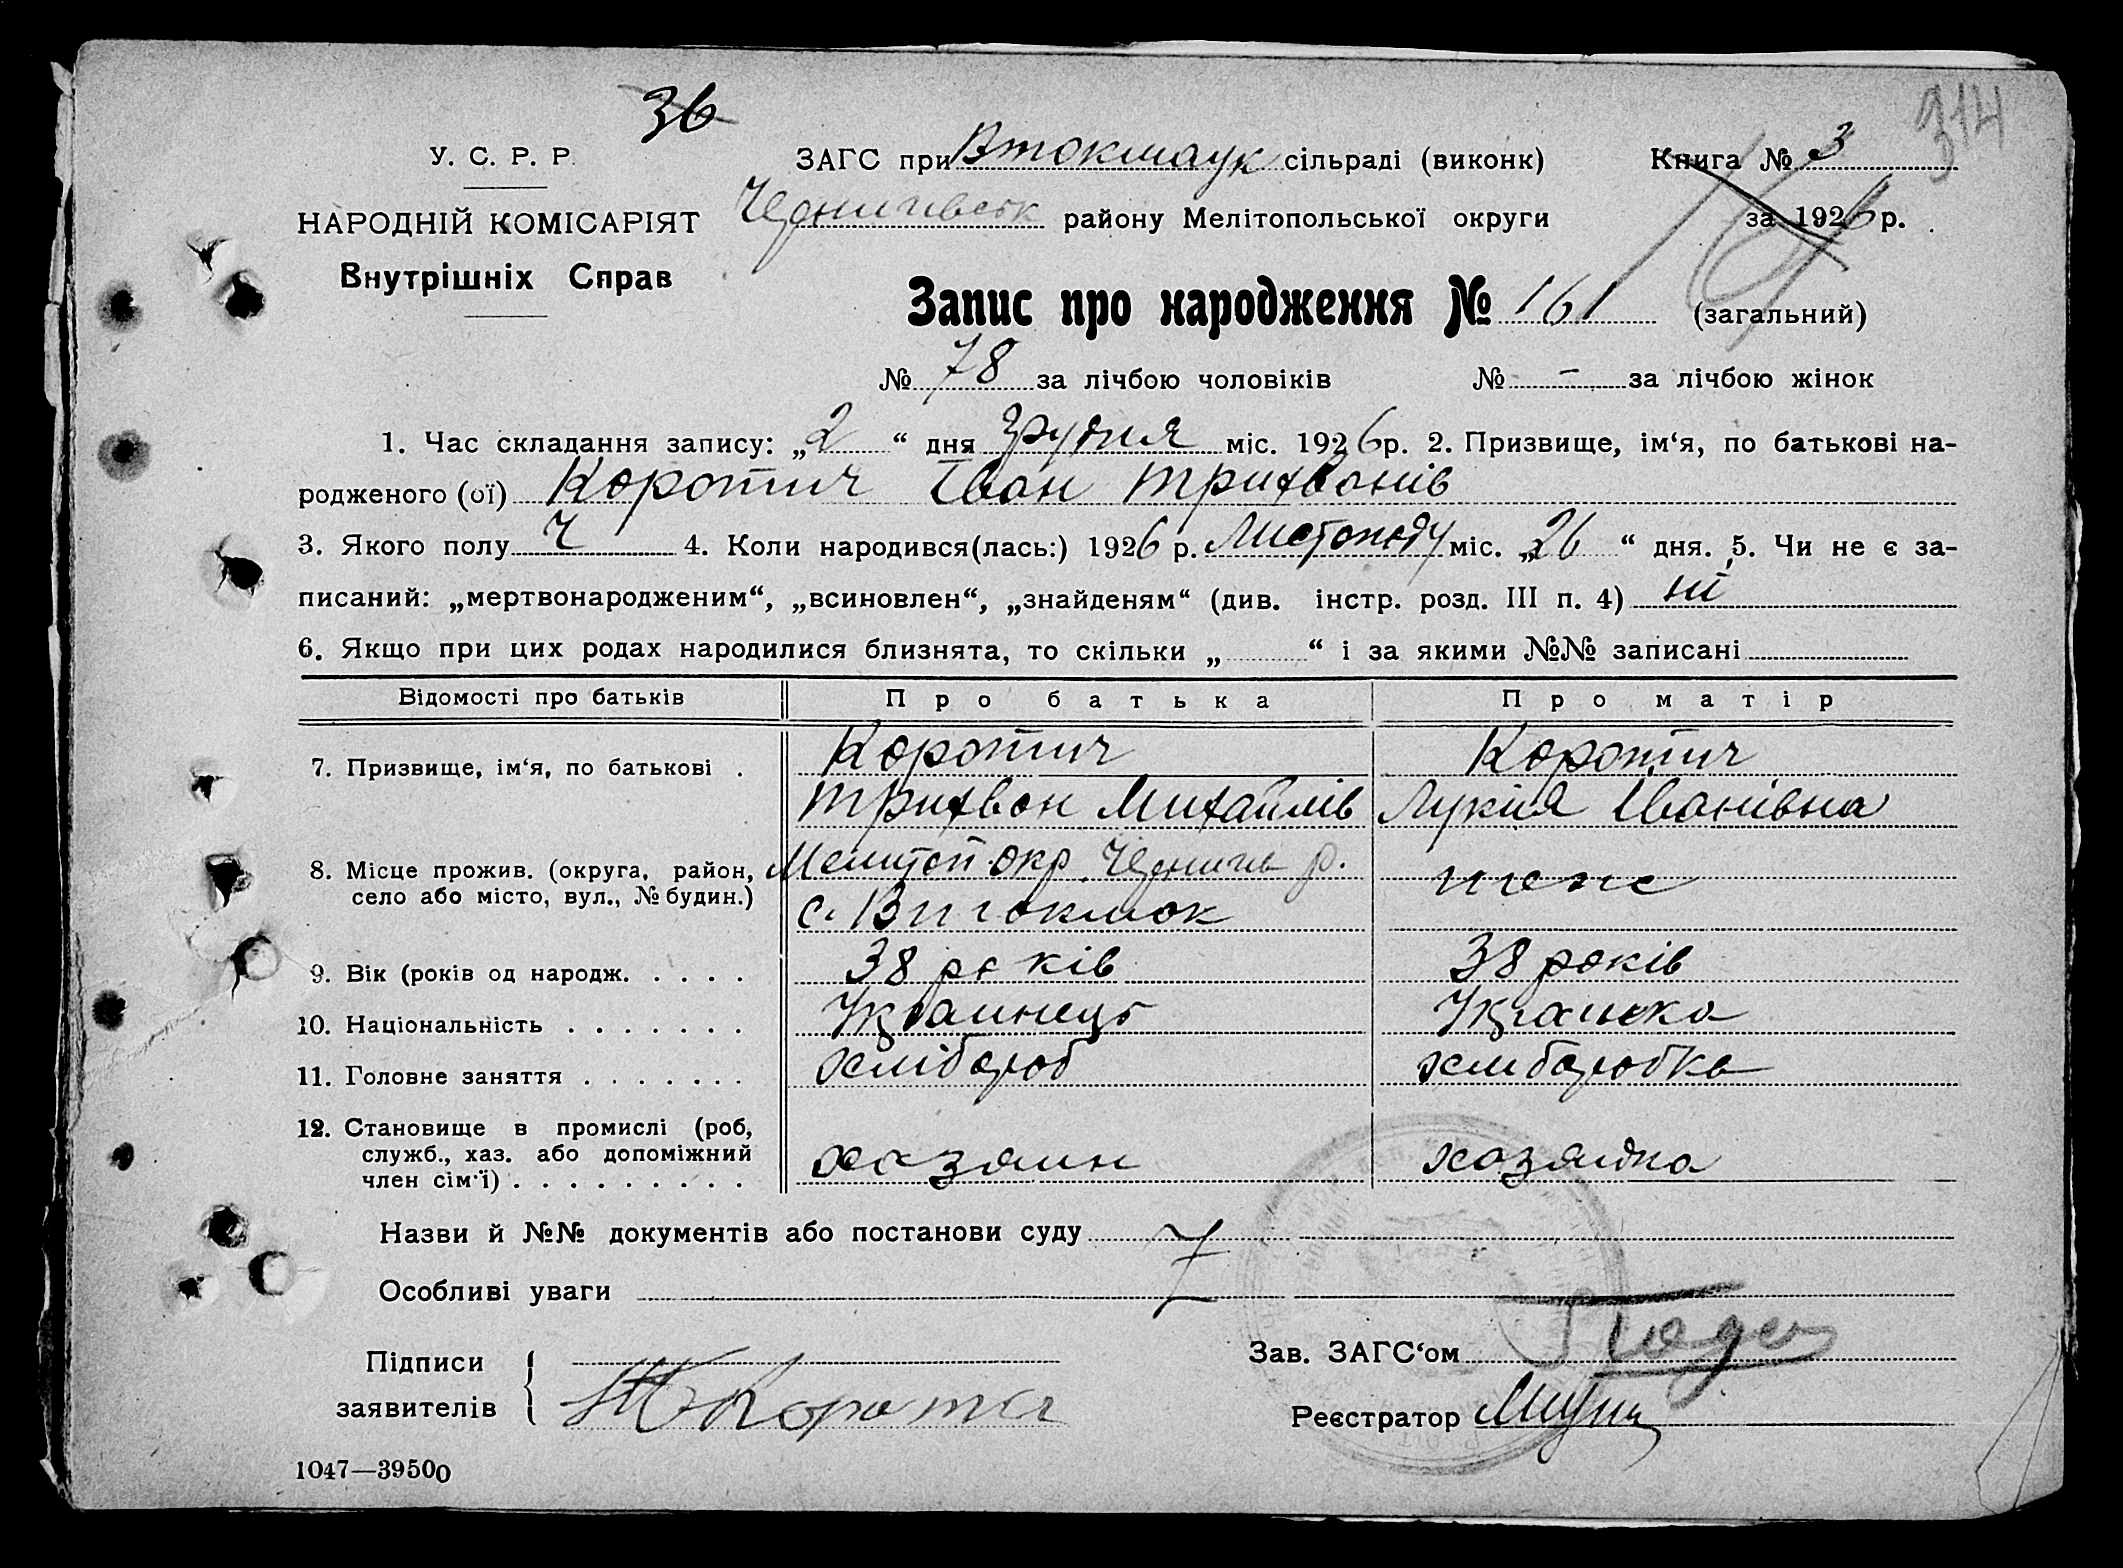 36
314
У. С. Р. Р.
ЗАГС при Втокмаук сільраді (виконк)
Книга № 3
НАРОДНІЙ КОМІСАРІЯТ
Чернигівськ району Мелітопольської округи
за 1926 р.
Внутрішніх Справ
Запис про народження № 161 (загальний)
№ 78 за лічбою чоловіків № - за лічбою жінок
1. Час складання запису: „2“ дня Грудня міс. 1926 р. 2. Призвище, ім‘я, по батькові на-
родженого (ої) Коротич Іван Трихвонів
3. Якого полу Ч 4. Коли народився(лась:) 1926 р. Листопаду міс. „26“ дня. 5. Чи не є за-
писаний: „мертвонародженим“, „всиновлен“, „знайденям“ (див. інстр. розд. III п. 4) ні
6. Якщо при цих родах народилися близнята, то скільки „ “ і за якими №№ записані
Відомості про батьків Про батька Про матір
7. Призвище, ім‘я, по батькові . Коротич Коротич
Трихвон Михайлів Лукія Іванівна
8. Місце прожив. (округа, район, Мелітоп окр Черниг р.
село або місто, вул., № будин.) с. теж
9. Вік (років од народж. . . . . 38 років 38 років
10. Національність . . . . . . . Українець Українка
11. Головне заняття . . . . . . . хлібороб хлиборобка
12. Становище в промислі (роб,
служб., хаз. або допоміжний хазяин хазяйка
член сім‘ї) . . . . . . . . .
Назви й №№ документів або постанови суду
Особливі уваги
Підписи
заявителів Коротич
Зав. ЗАГС‘ом
Реєстратор
1047—39500